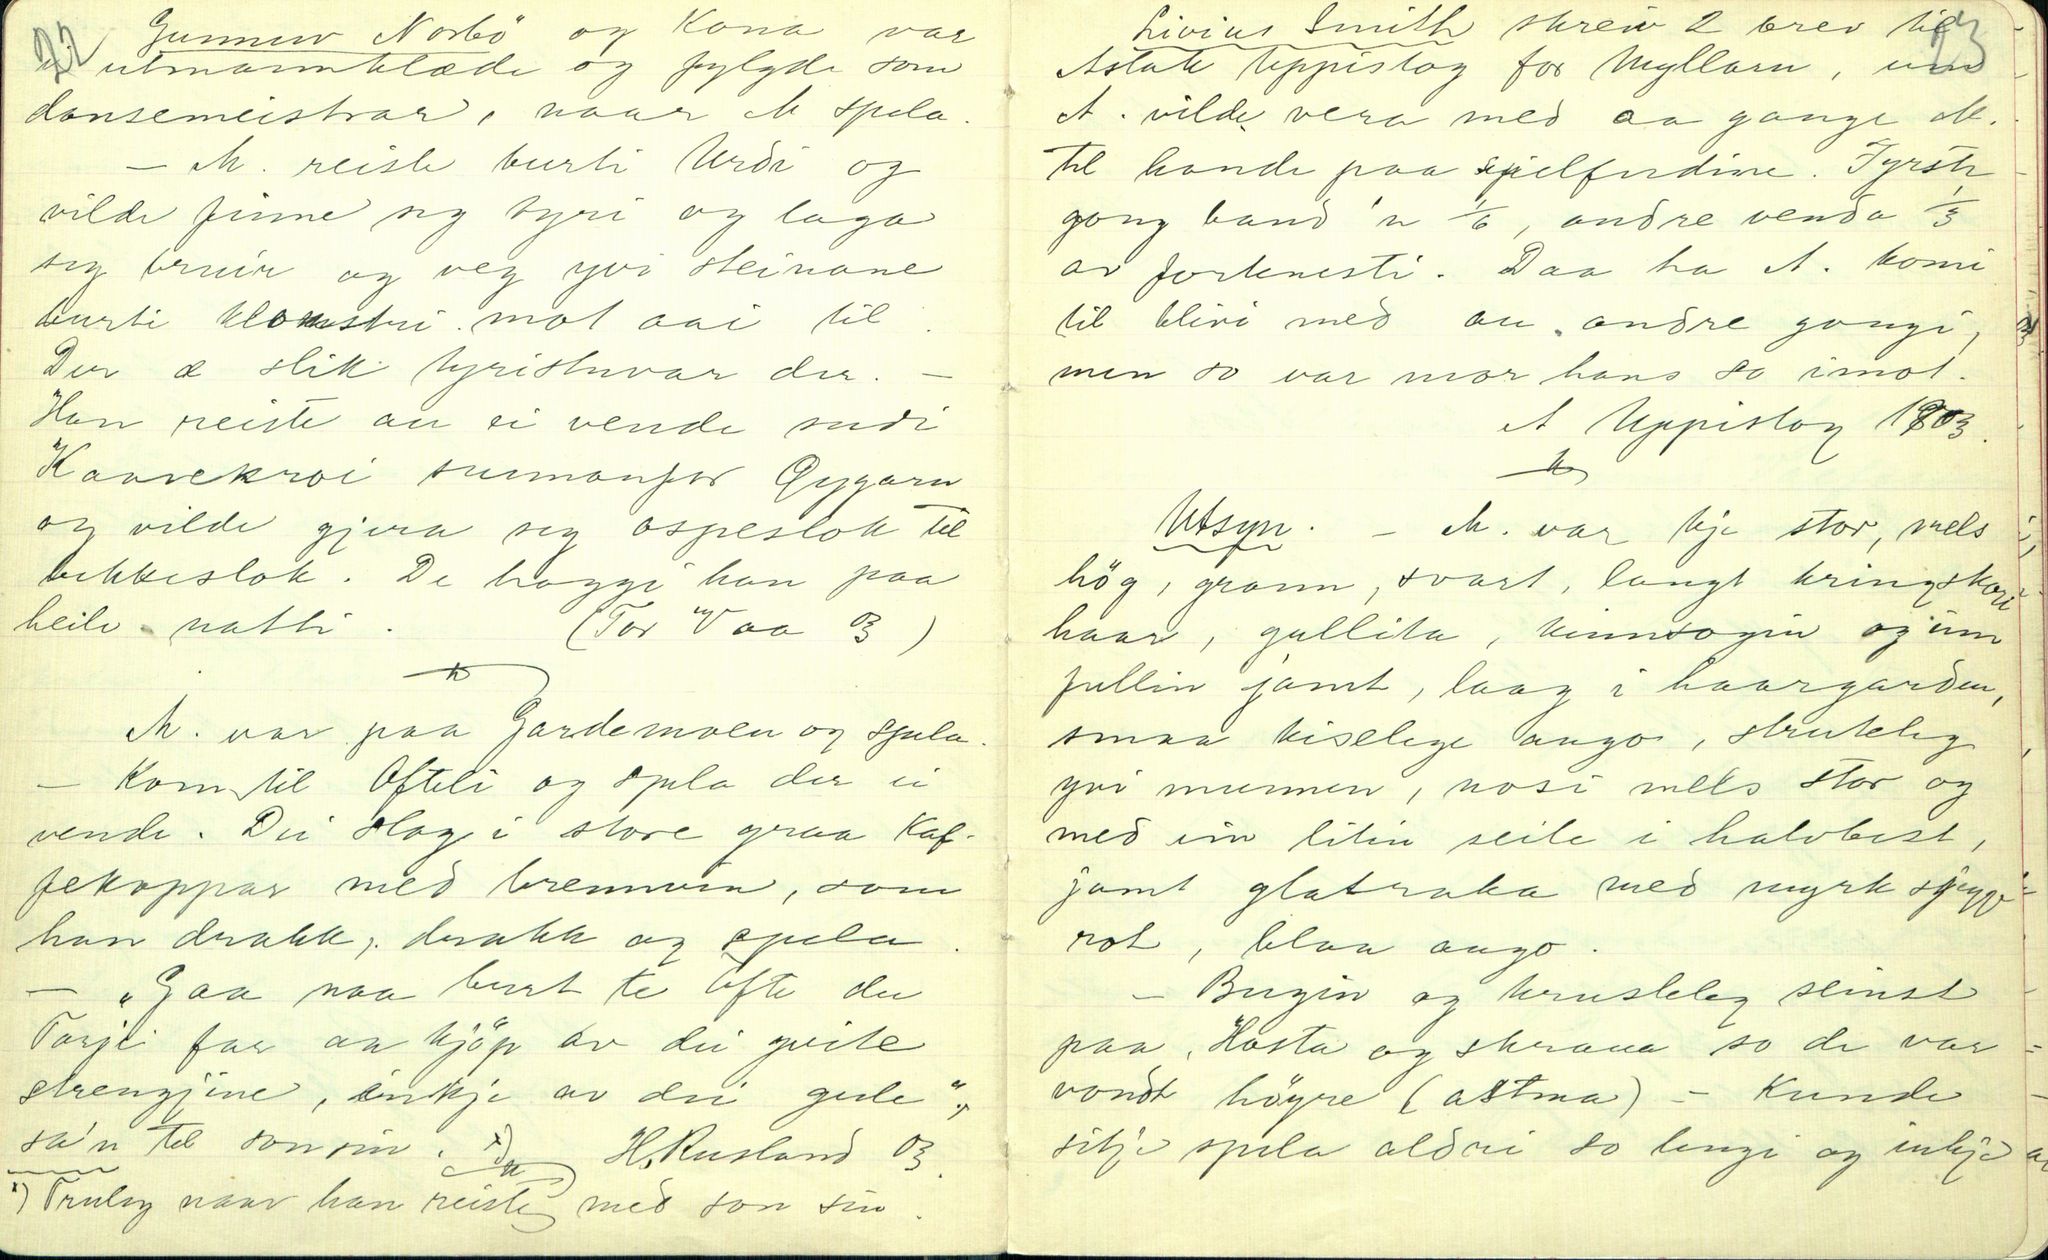 22
Gunnuv Norbö og Kona var
i utmannklæde og fylgde som
dansemeistrar, naar M spela.
— M. reiste burti Urdi og
vilde finne seg tyri og laga
seg bruir og veg yvi steinane
burti klomstri mot aai til.
Der æ slik tyristuvar der. —
Han reiste au ei vende sudi
Kaavekroi sunnanfor Gygaru
og vilde gjera seg ospeslok til
bekkeslok. De hoggi han paa
heile natti. (Tor Vaa 03)
M. var paa Gardemoen og spela.
— Kom til Ofteli og spela der ei
vende. Dei slog i store graa Kaf-
fekoppar med brennvin, som
han drakk, drakk og spela.
— „Gaa naa burt te Ofte du
Torjei far aa kjöp av dei gvite
strengjine, inkje av dei gule",
sa'n til son sin. x) H. Rusland 03.
x) Truleg naar han reiste med son sin.
23
Livius Smith skreiv 2 brev til
Aslak Uppistog for Myllarn, um
A. vilde vera med aa gange M.
til hande paa spelferdine. Fyrste
gong baud 'n 1/6, andre venda 1/3
av fortenesti. Daa ha A. komi
til blivi med au andre gongi,
men so var mor hans so imot.
A Uppistog 1903.
Utsyn. — M. var kje stor, mels
hög, grann, svart, langt kringskori
haar, gullita, kinnsogin og inn
fullin jamt, laag i haargarden,
smaa kiselege augo, struteleg
yvi munnen, nosi mels stor og
med ein litin seile i halvbest,
jamt glatraka med myrk skjegge-
rot, blaa augo.
— Bugin og krusleleg seinst
paa. Hosta og skraua so de var
vondt höyre (astma) — Kunde
sitje spela aldri so lengi og inkje